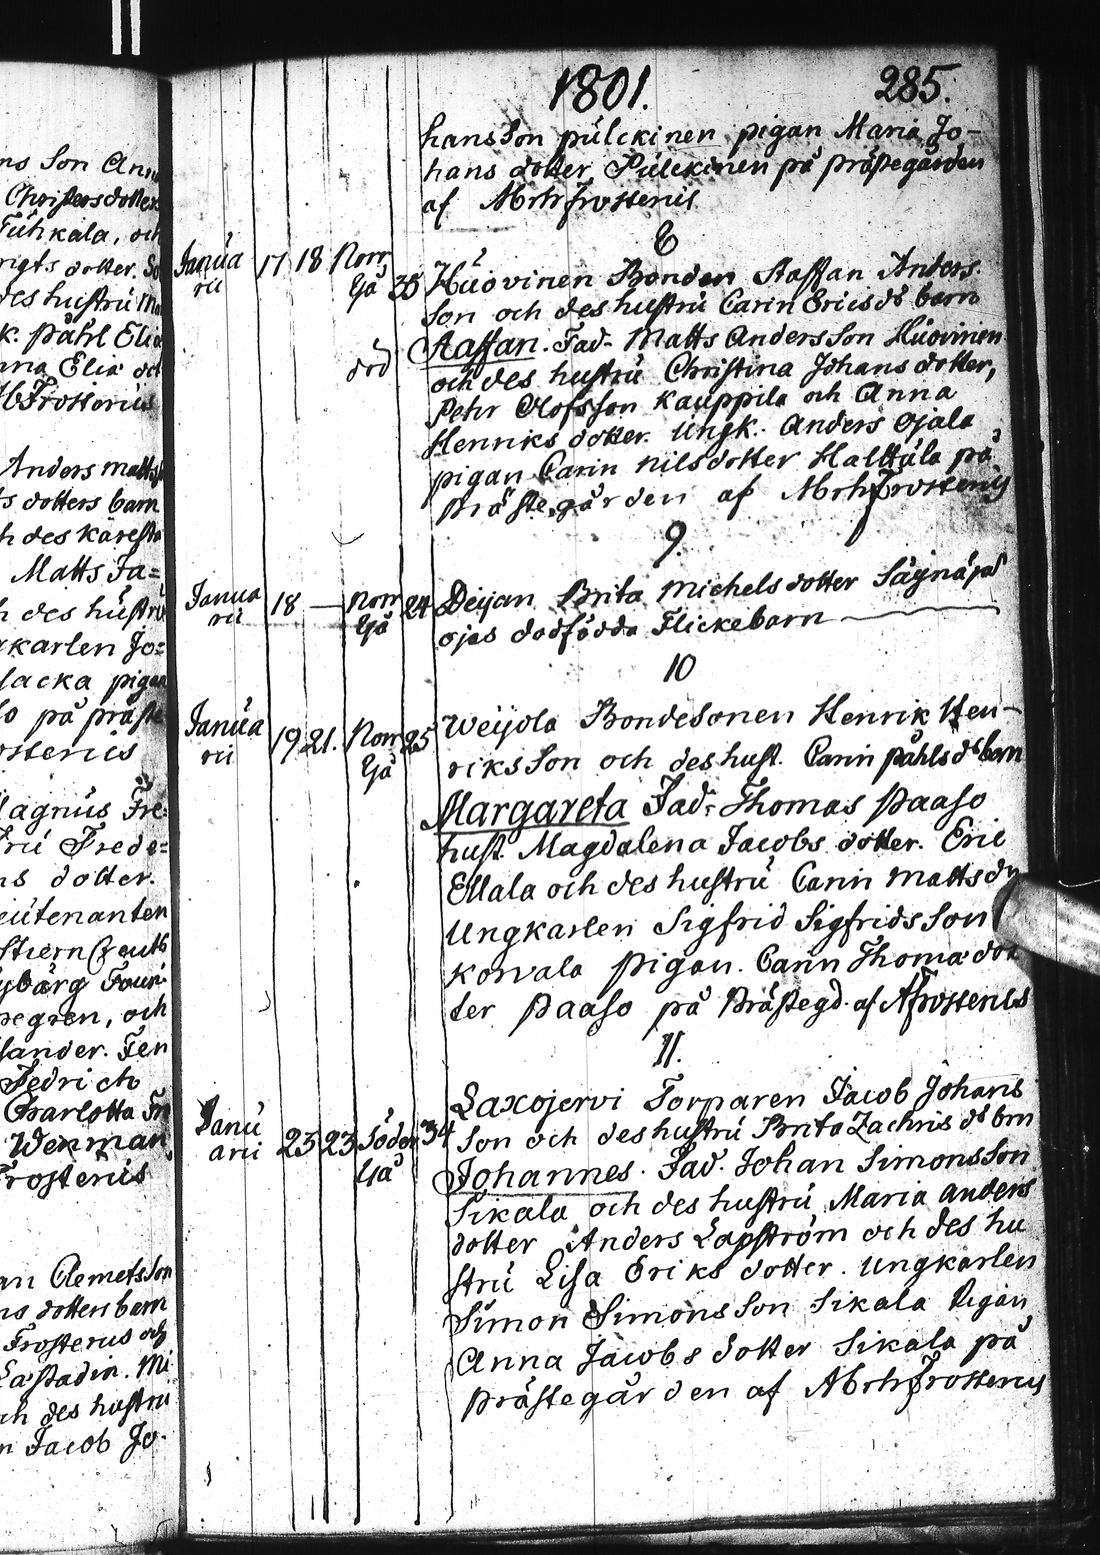 ns Son Anna
Christersdotter
Tuhkala, och
rigts dotter. So
des hustru Ma
k. Påhl Elia
nna Elia dot
Frosterus
Anders matts
ts dotters barn
h des käresta
Matts Ja=
h des hustru
gkarlen Jo=
lacka pigan
so på präste
ostenis
Magnus Fre
Fru Frede=
ns dotter.
eutenanten
Stiern Creutz
yberg Four
negren, och
lander. Fen
Fedrich
Charlotta Fr
Wenman
Frosterus
an Clemetsson
ns dotters barn
Frosterus och
Lastadin. Mi
ch des hustru
n Jacob Jo-
1801. 285.
hansson pulckinen pigan Maria Jo-
hans dotter Pulckinen på prästegården
af Abrh Frosterus
8
Janua
rii 17 18 Norr
Ga 35 Huovinen Bonden Staffan Anders
son och des hustru Carin Ericsdr barn
död Staffan. Fad. Matts Andersson Huovinen
och des hustru Christina Johansdotter,
Pehr Olofsson Kauppila och Anna
Henriks dotter. Ungk. Anders Ojala
pigan Carin nilsdotter Halttula på
Prästegården af Abrh Frosterus
9.
Janua
rii 18 — Norr
Gå 24 Deijan Brita Michelsdotter Säynäjä
ojas dödfödda Flickebarn
10
Janua
rii 19 21. Norr
Gå 25 Weijola Bondesonen Henrik Hen-
riksson och des hust. Carin påhlsdr barn
Margareta Fad. Thomas Paaso
hust. Magdalena Jacobs dotter. Eric
Ellala och des hustru Carin mattsdr
Ungkarlen Sigfrid Sigfridsson
Korvala pigan. Carin Thomædot
ter Paaso på Prästegd. af A Frosterus
11.
Janu
arii 23 23 Söder
Gå 34 Laxojervi Torparen Jacob Johans
son och des hustru Brita Zachris dr brn
Johannes. Fad. Johan Simonsson
Sikala och des hustru Maria anders
dotter Anders Lapström och des hu
stru Lisa Eriksdotter. Ungkarlen
Simon Simonsson Sikala Pigan
Anna Jacobs dotter Sikala på
Prästegården af Abrh Frosterus